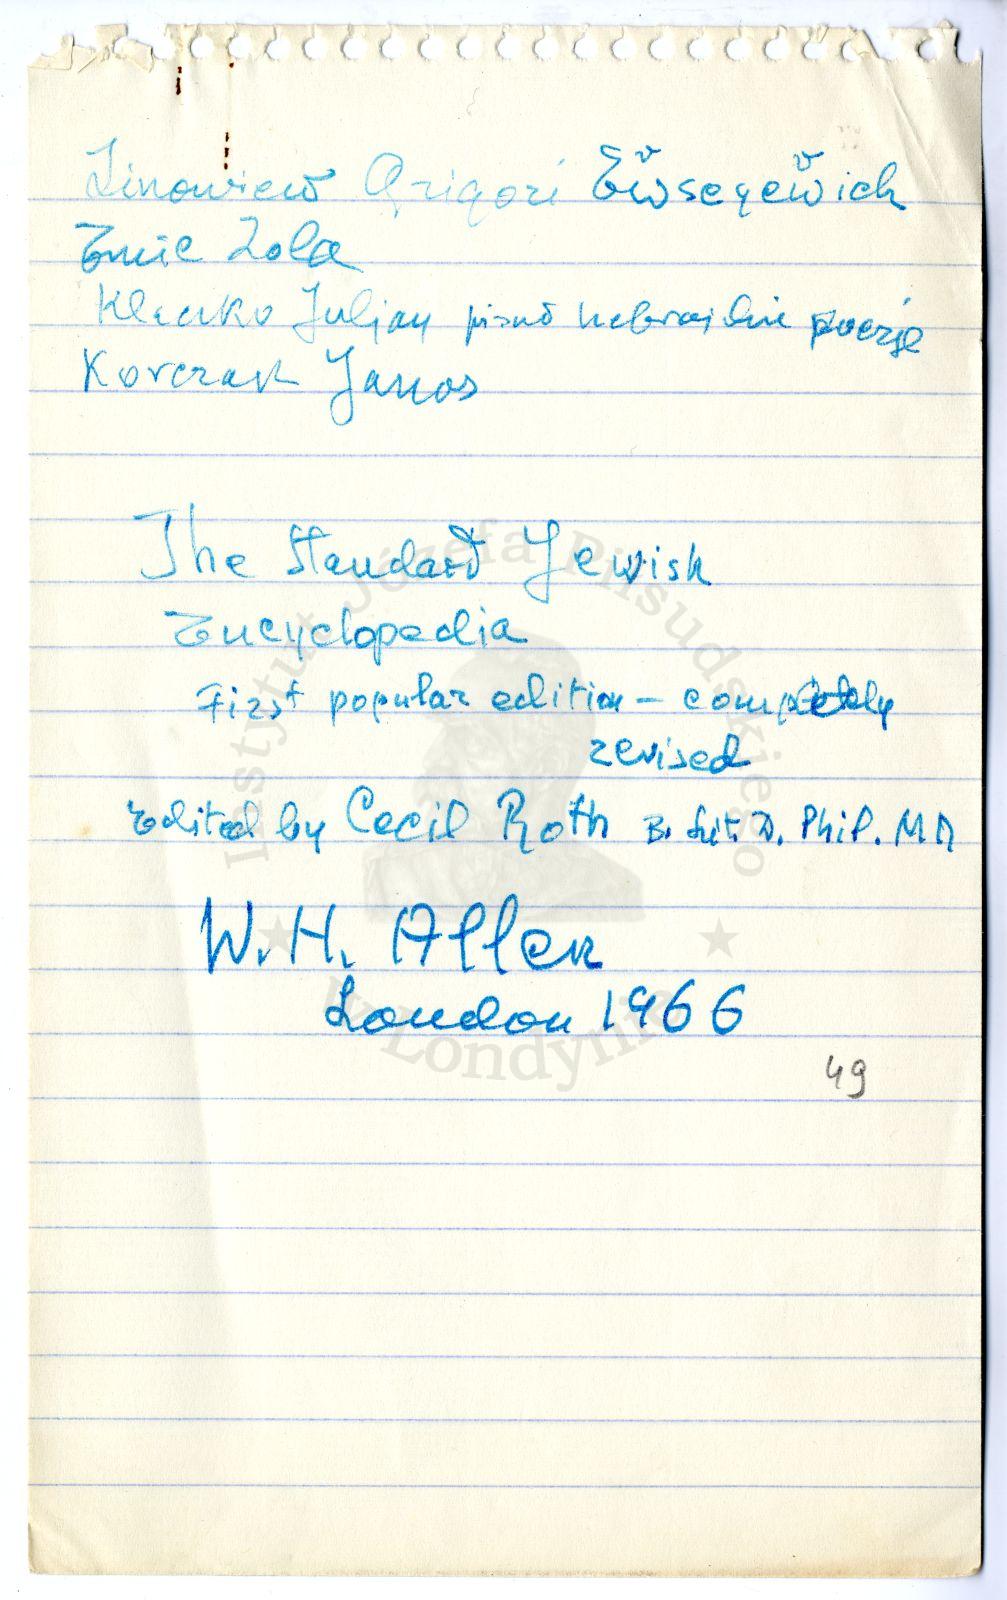 Zinowiew Grigori Ewseyewich
Emil Zola
Klaczko Juljan pisał hebrajskie poezje
Korczak Janos
The Standard Jewish
Encyclopedia
First popular edition – completely
revised
Edited by Cecil Roth B. Lit. D. Phil. MA
W. H. Allen
London 1966
49
Instytut Józefa Piłsudskiego
w Londynie